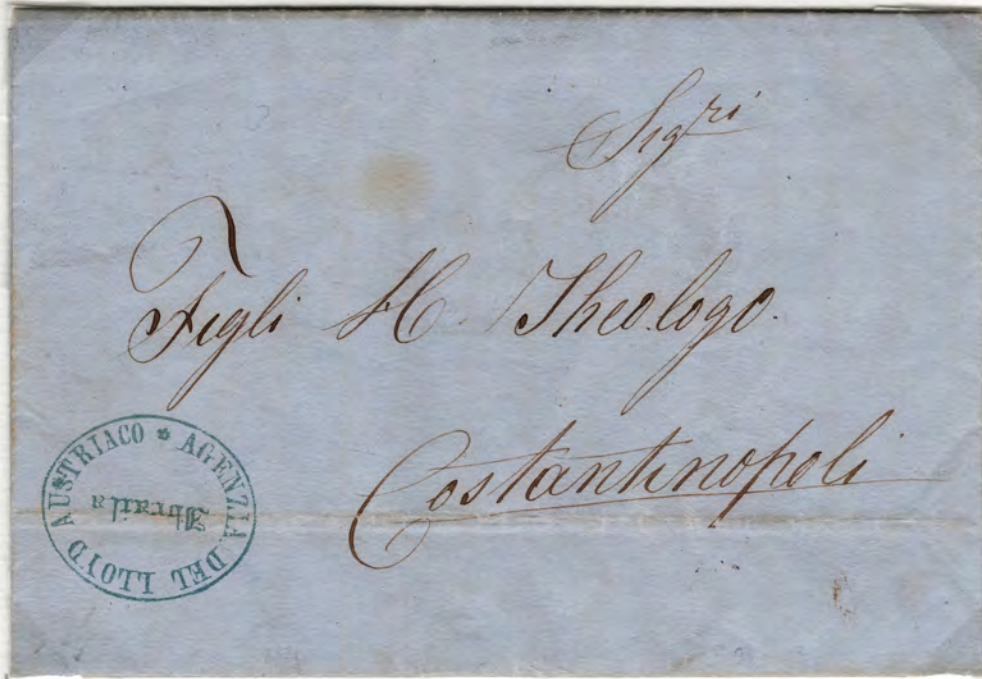 Sigri
Figli H. Theologo.
Costantinopoli
AGENZIA DEL LLOID AUSTRIACO *
Ibraila